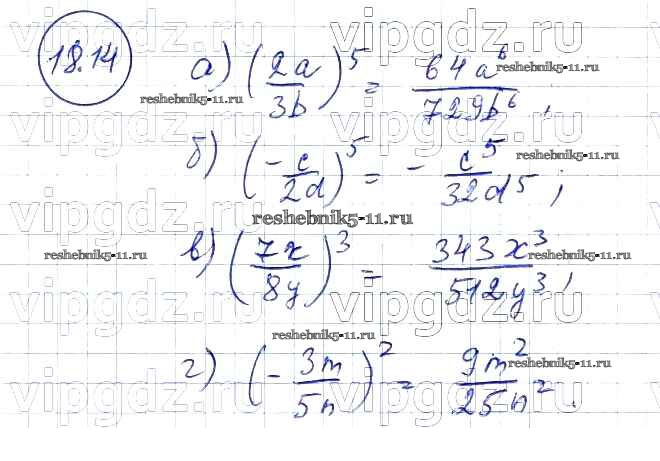 vipgdz.ru vipgdz.ru vipgdz.ru
18.14
а) (2a/3b)^5 = 64a^6/729b^6,
reshebnik5-11.ru reshebnik5-11.ru
vipgdz.ru vipgdz.ru vipgdz.ru
б) (-c/2d)^5 = - c^5/32d^5;
reshebnik5-11.ru
vipgdz.ru vipgdz.ru vipgdz.ru
reshebnik5-11.ru
в) (7x/8y)^3 = 343x^3/512y^3;
reshebnik5-11.ru reshebnik5-11.ru
vipgdz.ru vipgdz.ru vipgdz.ru
reshebnik5-11.ru
г) (-3m/5n)^2 = 9m^2/25n^2.
reshebnik5-11.ru
vipgdz.ru vipgdz.ru vipgdz.ru